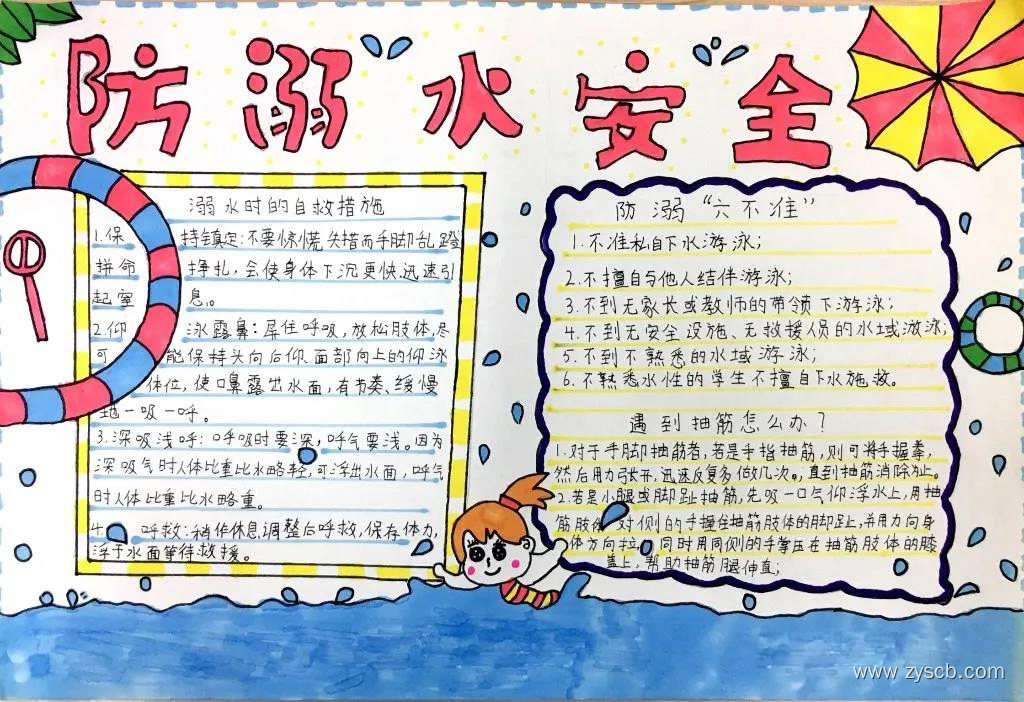 防溺水安全
溺水时的自救措施
1.保持镇定:不要惊慌失措而手脚乱蹬
拼命挣扎,会使身体下沉更快迅速引
起窒息。
2.仰泳露鼻:屏住呼吸,放松肢体,尽
可能保持头向后仰.面部向上的仰泳
体位,使口鼻露出水面,有节奏、缓慢
地一吸一呼。
3.深吸浅呼:呼吸时要深,呼气要浅。因为
深吸气时人体比重比水略轻,可浮出水面,呼气
时人体比重比水略重。
4.呼救:稍作休息,调整后呼救,保存体力,
浮于水面等待救援。
防溺“六不准”
1.不准私自下水游泳;
2.不擅自与他人结伴游泳;
3.不到无家长或教师的带领下游泳;
4.不到无安全设施、无救援人员的水域游泳;
5.不到不熟悉的水域游泳;
6.不熟悉水性的学生不擅自下水施救。
遇到抽筋怎么办?
1.对于手脚抽筋者,若是手指抽筋,则可将手握拳,
然后用力张开,迅速反复多做几次,直到抽筋消除为止。
2.若是小腿或脚趾抽筋,先吸一口气仰浮水上,用抽
筋肢体对侧的手握住抽筋肢体的脚趾,并用力向身
体方向拉,同时用同侧的手掌压在抽筋肢体的膝
盖上,帮助抽筋腿伸直;
www.zyscb.com